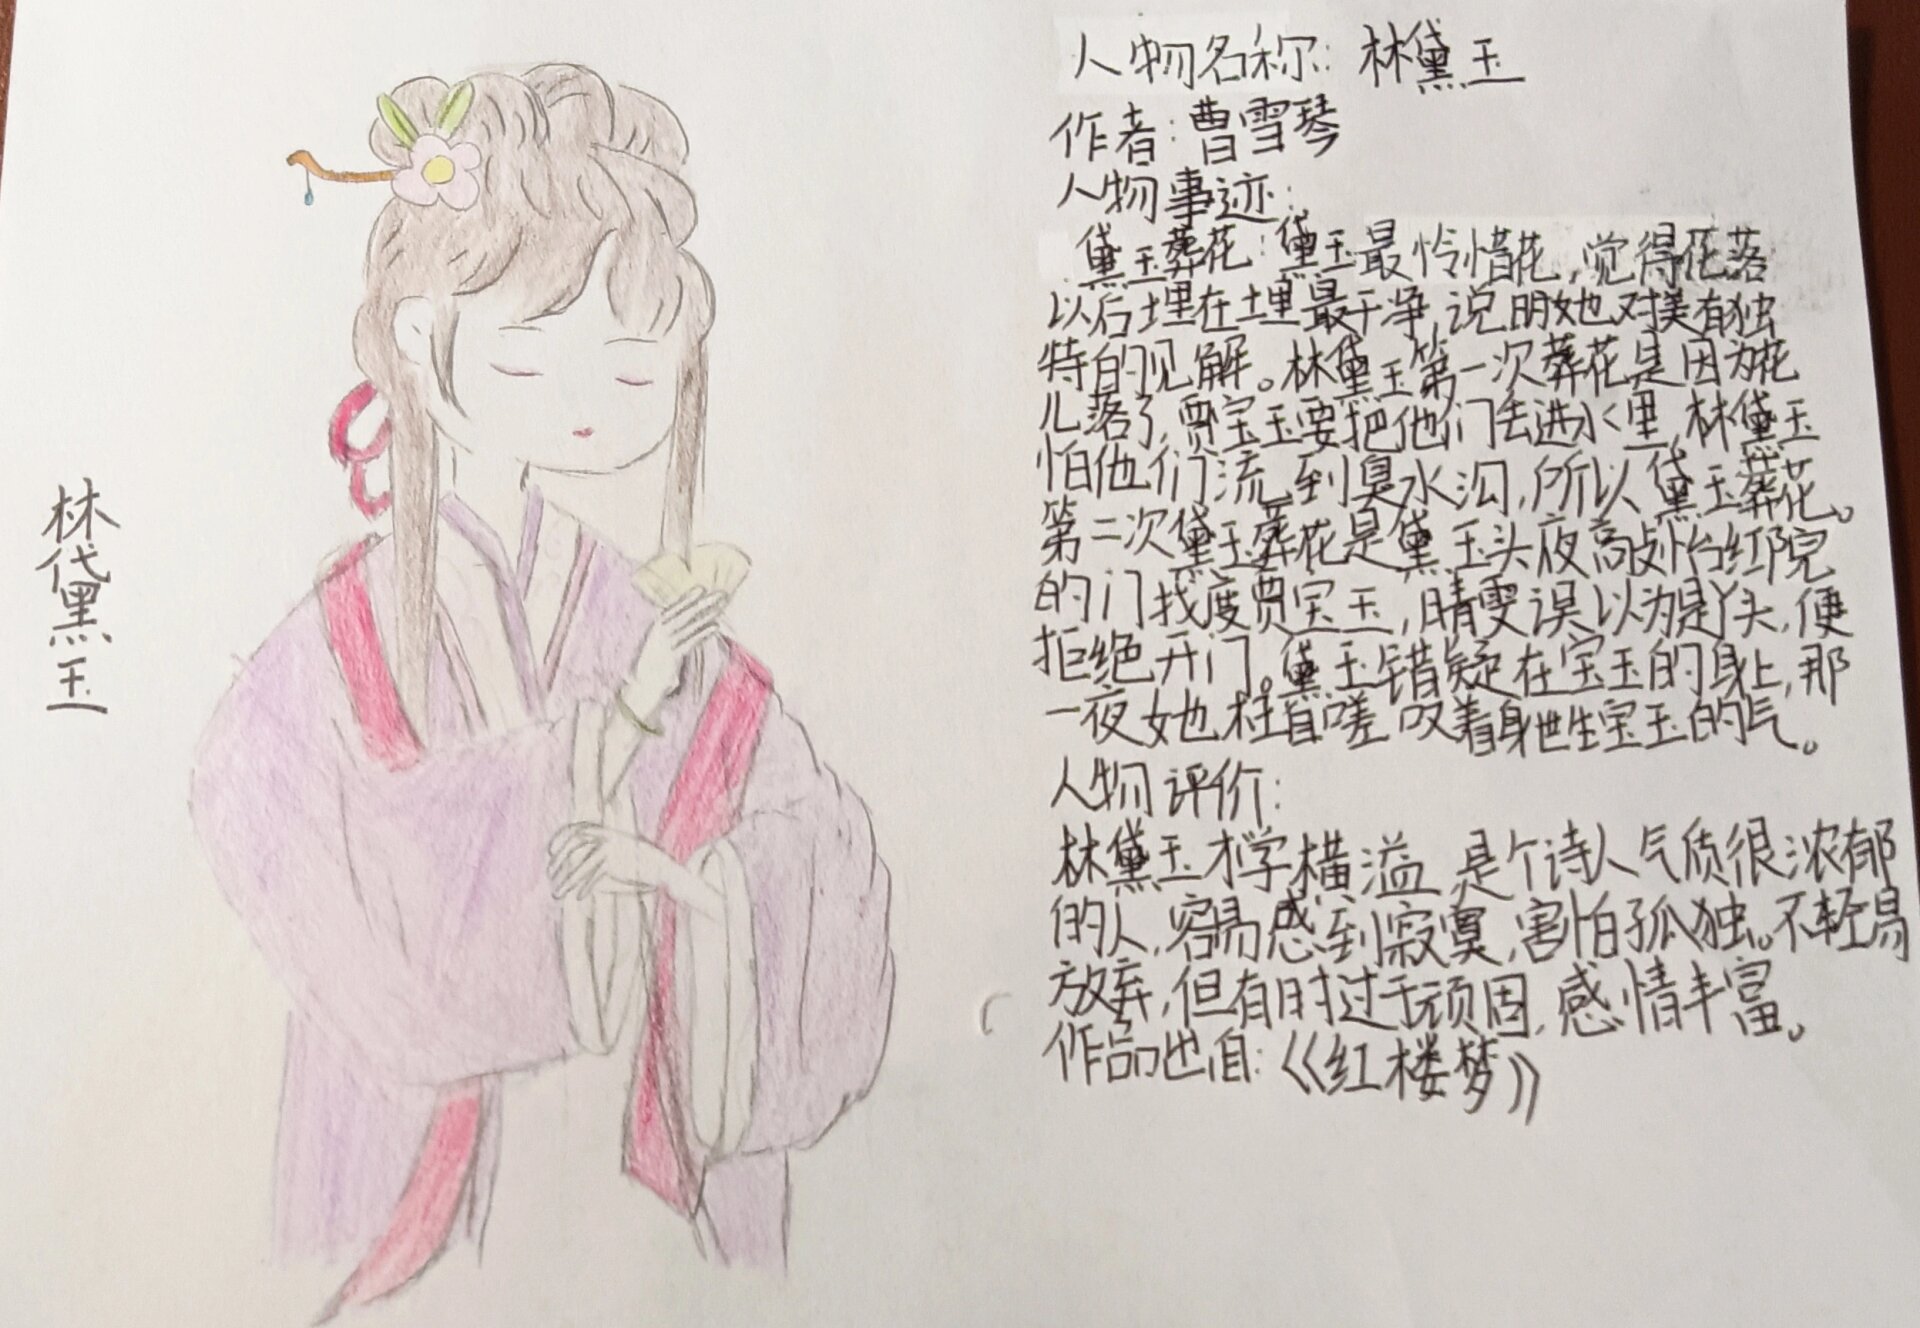 林黛玉
人物名称: 林黛玉
作者:曹雪琴
人物事迹:
黛玉葬花:黛玉最怜惜花,觉得花落
以后埋在埋最干净,说明她对美有独
特的见解。林黛玉第一次葬花是因为花
儿落了,贾宝玉要把他们丢进水里,林黛玉
怕他们流到臭水沟,所以黛玉葬花。
第二次黛玉葬花是黛玉头夜高敲怡红院
的门找贾宝玉,晴雯误以为是丫头,便
拒绝开门。黛玉错疑在宝玉的身上,那
一夜她嗟叹着身世生宝玉的气。
人物评价:
林黛玉才学横溢 是个诗人气质很浓郁
的人,容易感到寂寞,害怕孤独。不轻易
放弃,但有时过于顽固,感情丰富。
作品出自:《红楼梦》